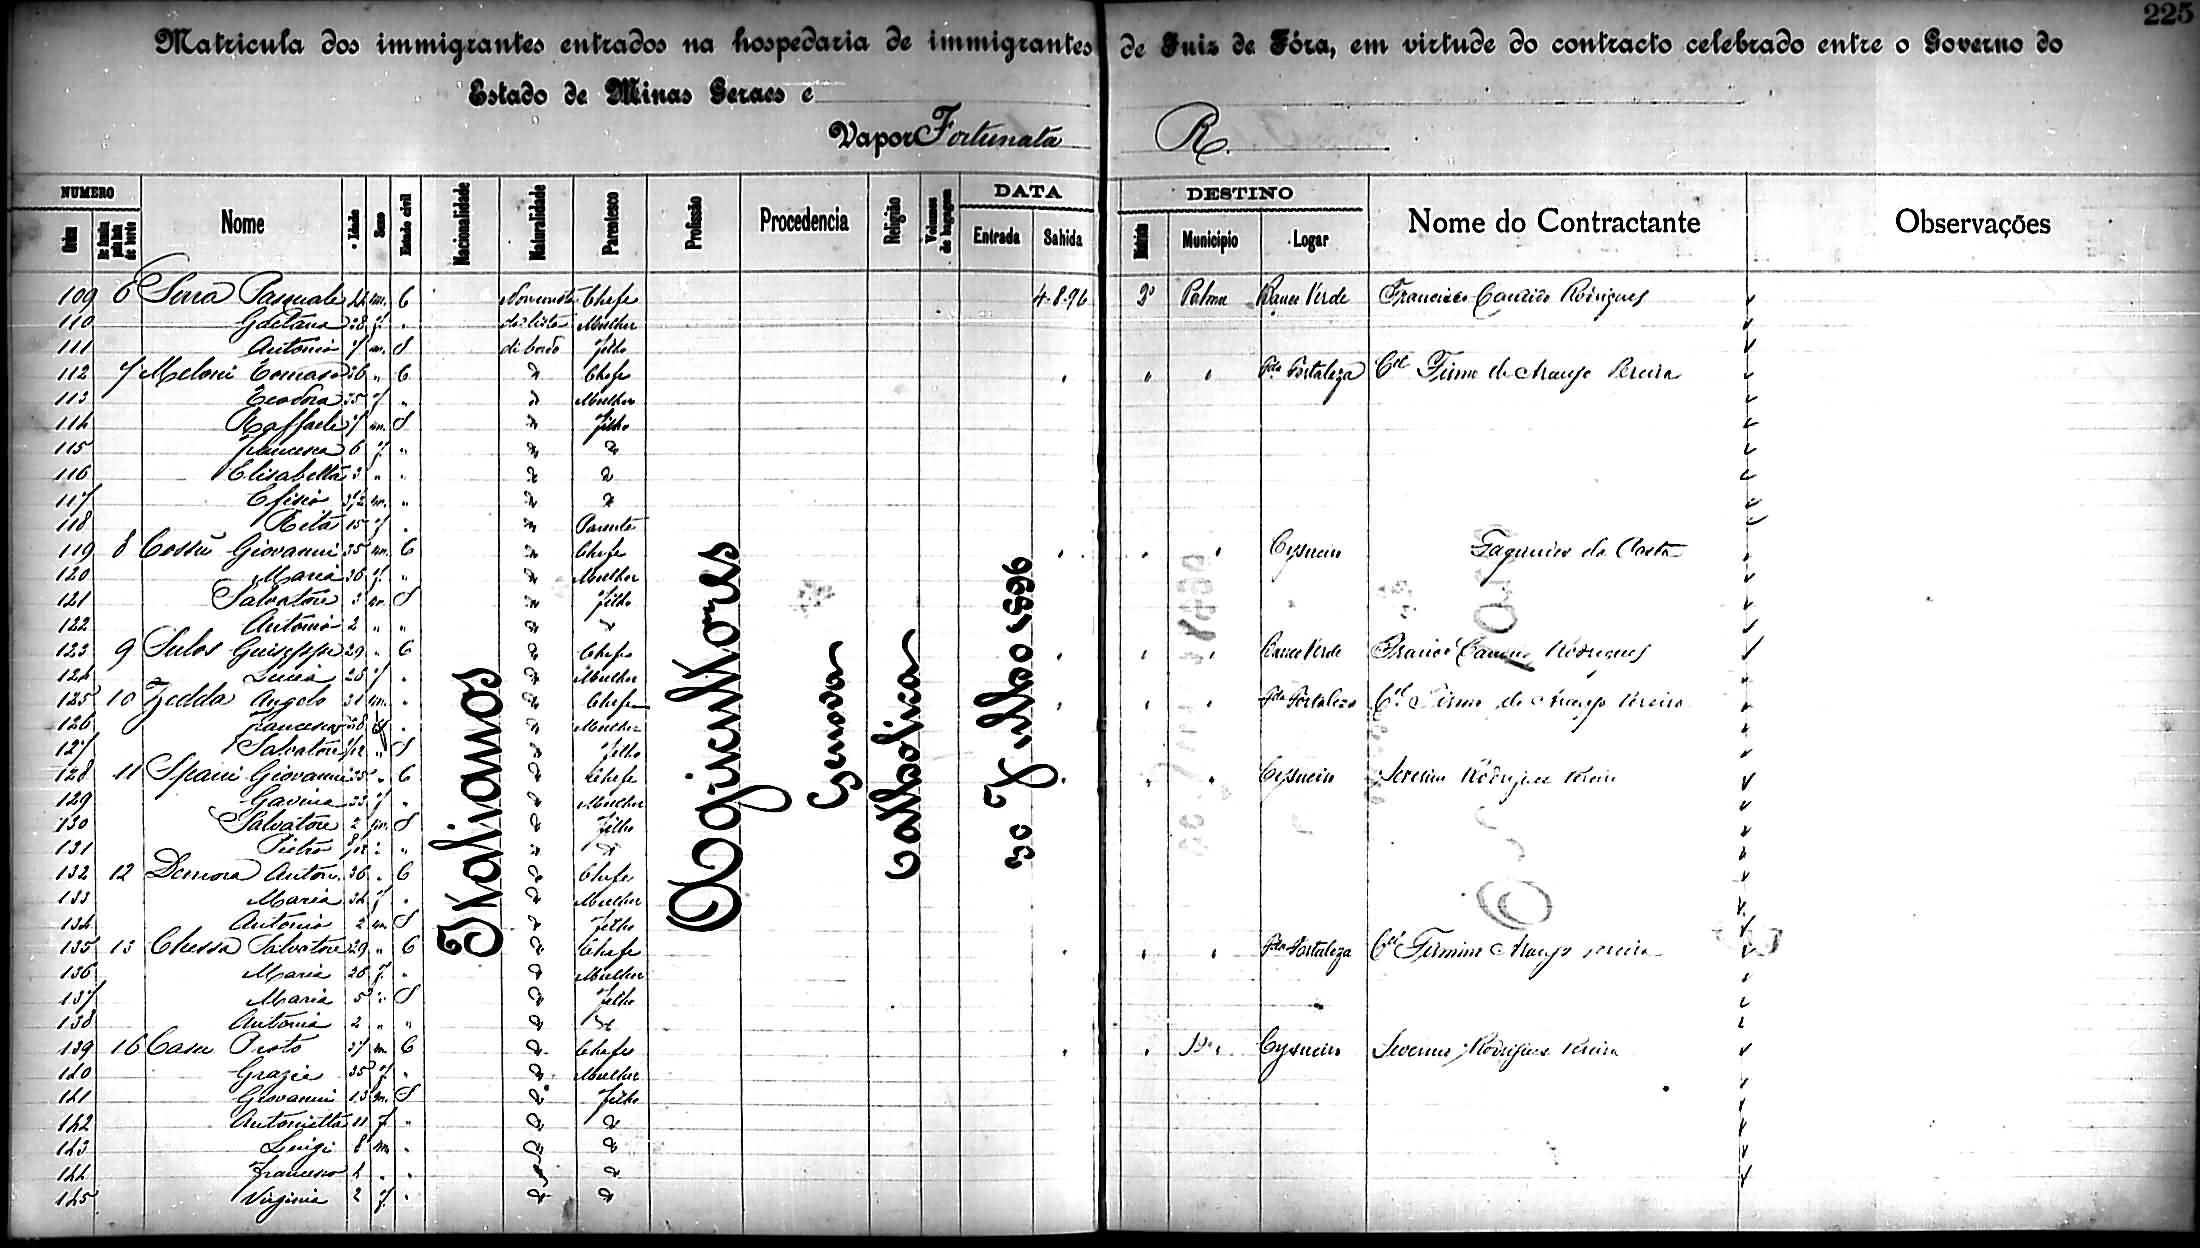 225
Matricula dos immigrantes entrados na hospedaria de immigrantes de Juiz de Fóra, em virtude do contracto celebrado entre o Governo do
Estado de Minas Geraes e
Vapor Fortunata R.
NUMERO DATA DESTINO
Ordem Nome Idade Sexo Estado civil Nacionalidade Naturalidade Parentesco Profissão Procedencia Religião Volumes de bagagem Entrada Sahida Municipio Logar Nome do Contractante Observações
Italianos
Agricultores
Genova
Catholica
30 Julho 1896
109 6 Serra Pasquale m. C Chefe 4-8-96 2º Palma Banco Verde Francisco Candido Rodrigues
110 Gaetana 28 f. " da lista Mulher
111 Antonio 7 m. S de bordo filho
112 7 Meloni Tomaso 36 " C Chefe " " " Fda Fortaleza Cel Firmo de Araujo Pereira
113 Teodora 35 f. " Mulher
114 Raffaele m. S filho
115 Francesca 6 f. "
116 Elisabetta 3 " "
117 Efisio m. "
118 Rita 15 f. " Parente
119 8 Cossu Giovanni 35 m. C Chefe " " " Cysneiro Fagundes da Costa
120 Maria 36 f. " Mulher
121 Salvatore 3 m. S filho
122 Antonio 2 " "
123 9 Sulos Guiseppe 29 " C Chefe " " " Banco Verde Rodrigues
124 Luisa 26 f. " Mulher
125 10 Zedda Angelo 31 m. " Chefe " " " Fda Fortaleza Cel Firmo de Araujo Pereira
126 Francesca 28 f. " Mulher
127 Salvatore " S filho
128 11 Spani Giovanni 35 " C Chefe " " " Cysneiro Severino Rodrigues Pereira
129 Gavina 33 f. " Mulher
130 Salvatore 2 m. S filho
131 Pietro " "
132 12 Demora Anton. 36 " C Chefe
133 Maria 34 f. " Mulher
134 Antonio 2 m. S filho
135 13 Chessa Salvatore 29 " C Chefe " " " Fda Fortaleza Cel Firmino Araujo Pereira
136 Maria 26 f. " Mulher
137 Maria 5 " S filho
138 Antonia 2 " "
139 16 Casu Proto 37 m. C Chefe " " Cysneiro Severino Rodrigues Pereira
140 Grazia 35 f. " Mulher
141 Giovanni 13 m. S filho
142 Antonietta 11 f. "
143 Luigi 8 m. "
144 Francesco 4 " "
145 Virginia 2 f. "